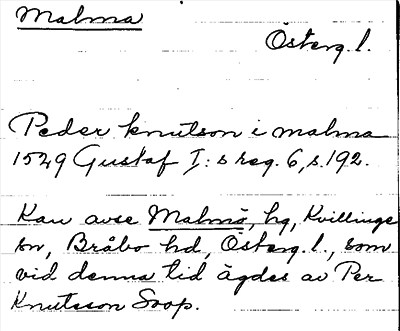 Malma
Österg. l.
Peder Knutson i Malma
1529 Gustaf I: s reg. 6, s. 192.
Kan avse Malmö, hg, Kvillinge
sn, Bråbo hd, Österg. l., som
vid denna tid ägdes av Per
Knutsson Soop.